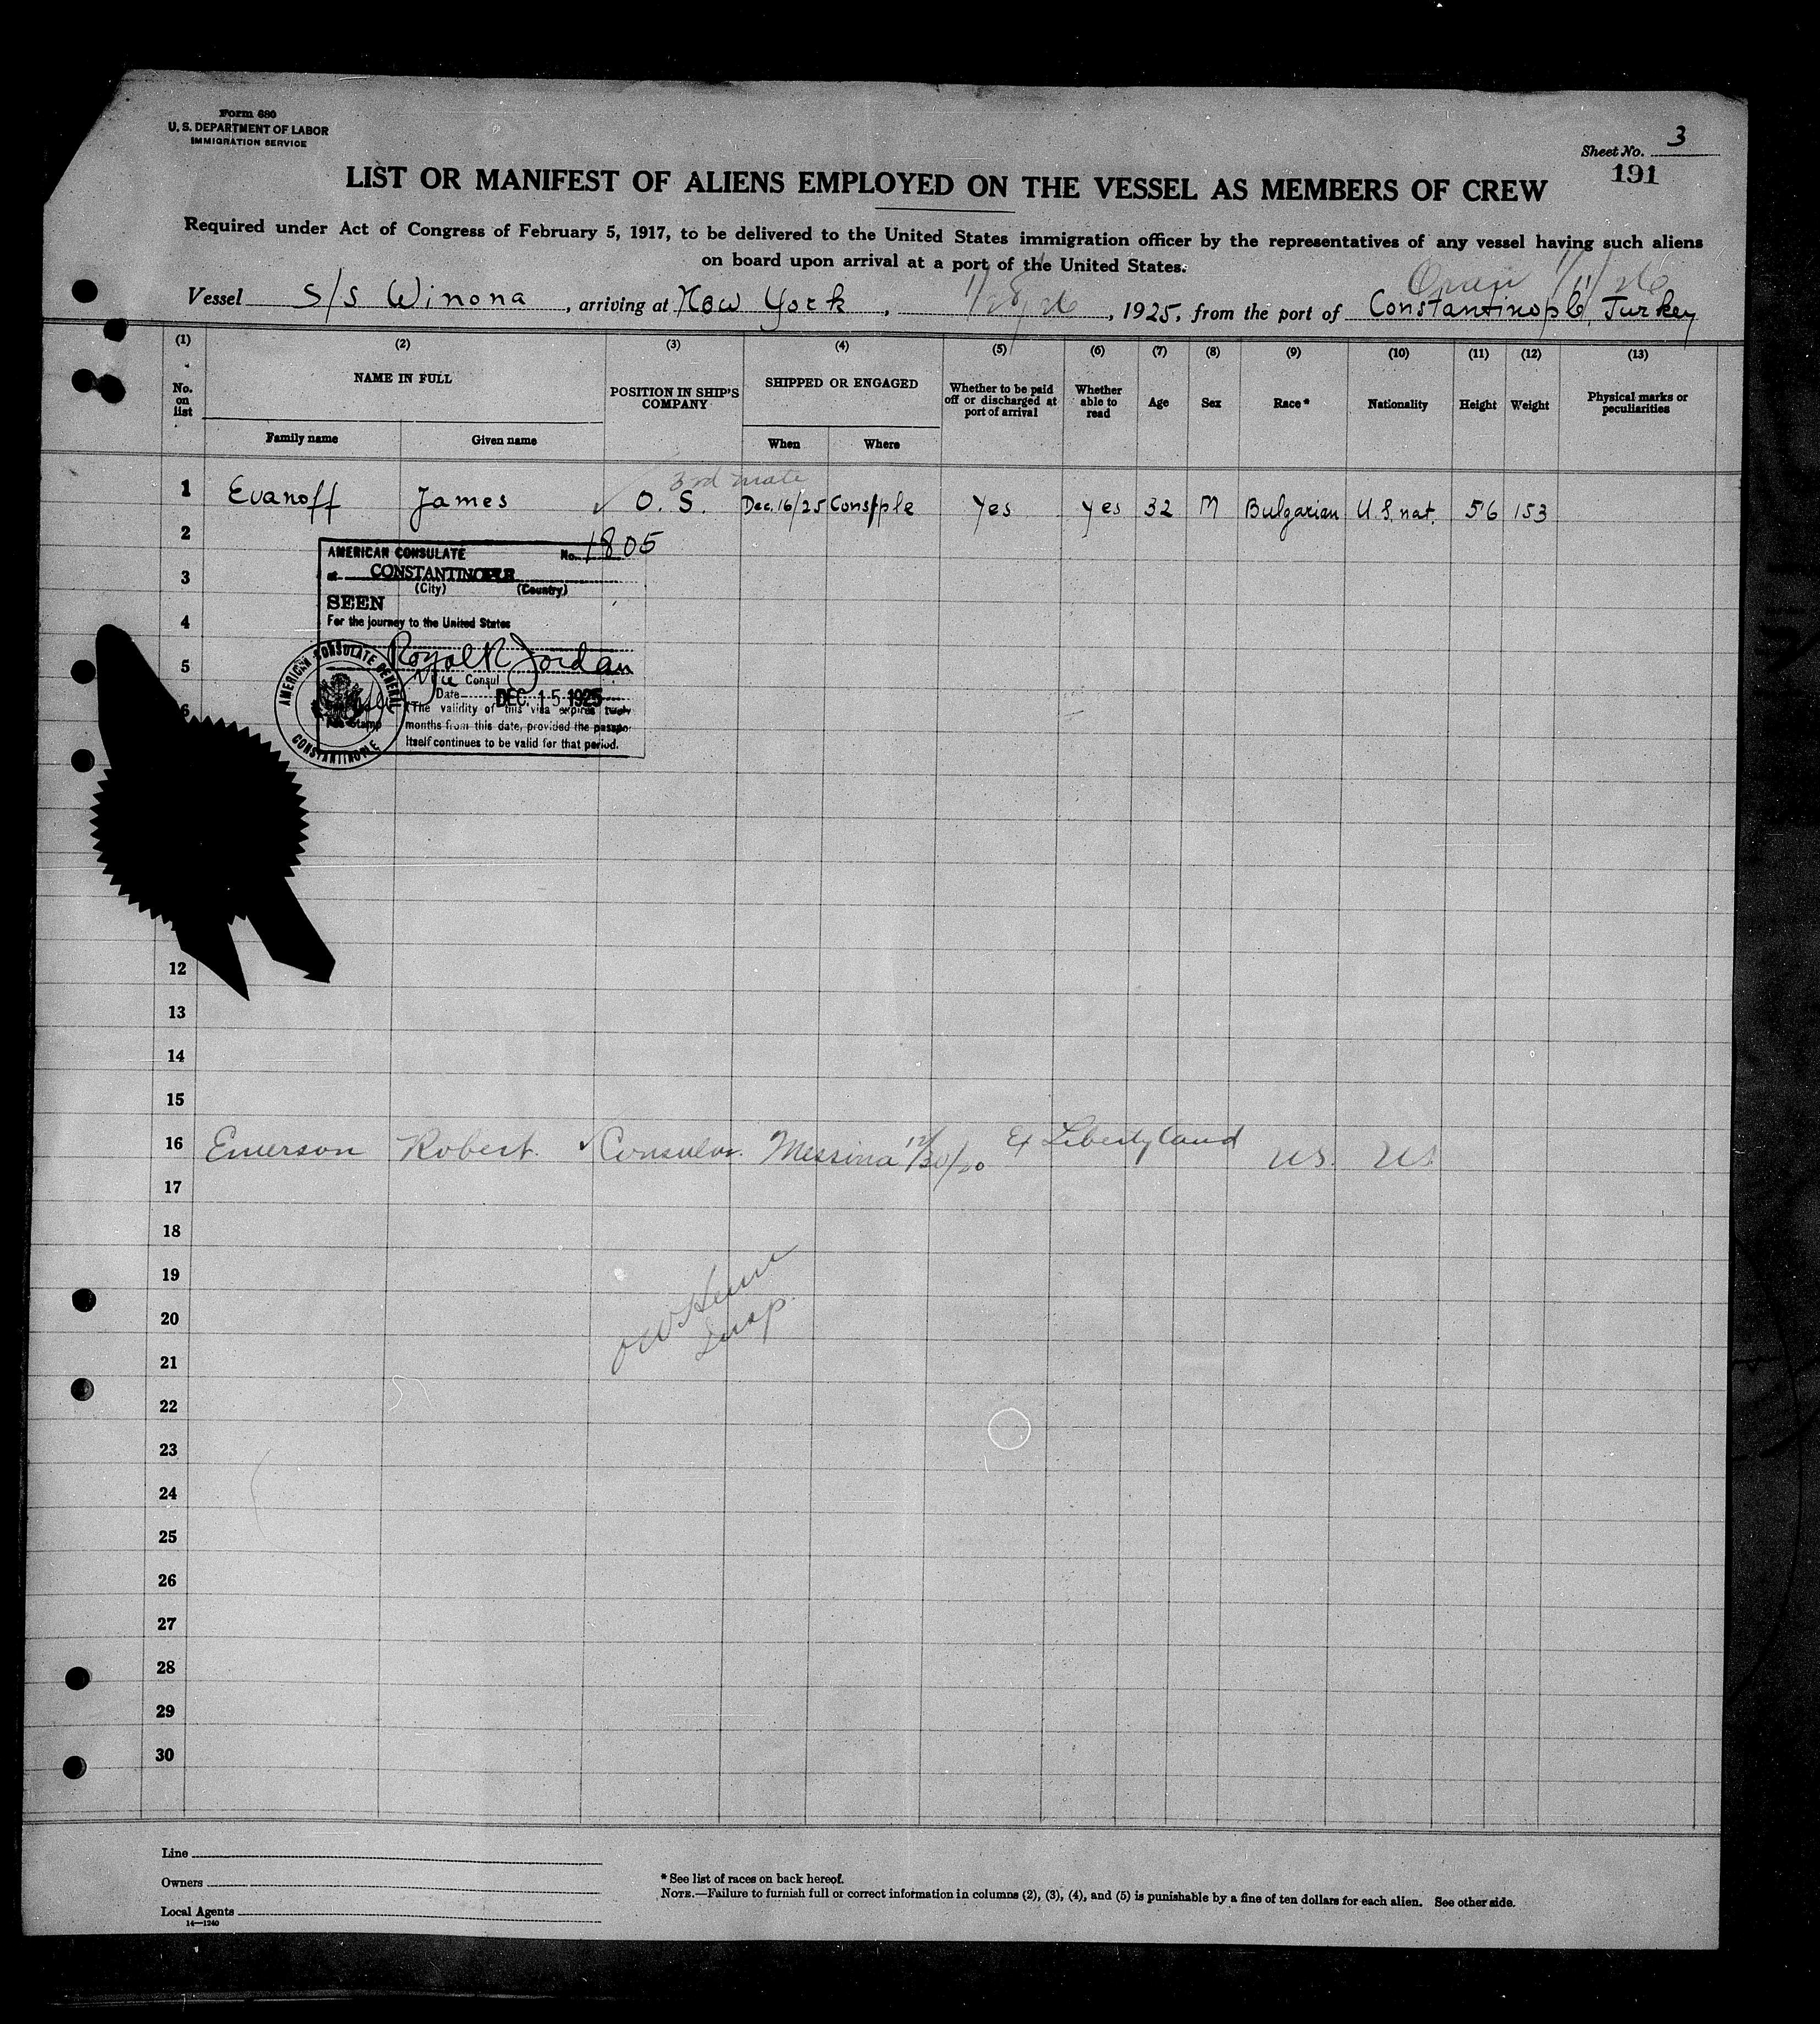 Form 680
U. S. DEPARTMENT OF LABOR
IMMIGRATION SERVICE
Sheet No. 3
191
LIST OR MANIFEST OF ALIENS EMPLOYED ON THE VESSEL AS MEMBERS OF CREW
Required under Act of Congress of February 5, 1917, to be delivered to the United States immigration officer by the representatives of any vessel having such aliens
on board upon arrival at a port of the United States.
Oran 1/11/26
Vessel S/S Winona, arriving at New York, 1/28/26, 1925, from the port of Constantinople, Turkey
(1) (2) (3) (4) (5) (6) (7) (8) (9) (10) (11) (12) (13)
No. on list
NAME IN FULL
Family name
Given name
POSITION IN SHIP'S COMPANY
SHIPPED OR ENGAGED
When
Where
Whether to be paid off or discharged at port of arrival
Whether able to read
Age
Sex
Race*
Nationality
Height
Weight
Physical marks or peculiarities
3rd mate
1 Evanoff James O. S. Dec. 16/25 Conspple Yes yes 32 M Bulgarian U.S. nat. 5'6 153
2
AMERICAN CONSULATE No. 1805
3
at CONSTANTINOPLE
(City) (Country)
SEEN
4
For the journey to the United States
5
Royal R Jordan
Vice Consul
Date DEC. 15 1925
6
(The validity of this visa expires twelve
months from this date, provided the passpo
itself continues to be valid for that period.
Fee Stamp
AMERICAN CONSULATE GENERAL
CONSTANTINOPLE
12
13
14
15
16 Emerson Robert. Consular. Messina 12/30/20 Ex Libertyland U.S. U.S.
17
18
19
20
Insp.
21
22
23
24
25
26
27
28
29
30
Line
Owners
Local Agents
14—1240
* See list of races on back hereof.
NOTE.—Failure to furnish full or correct information in columns (2), (3), (4), and (5) is punishable by a fine of ten dollars for each alien. See other side.